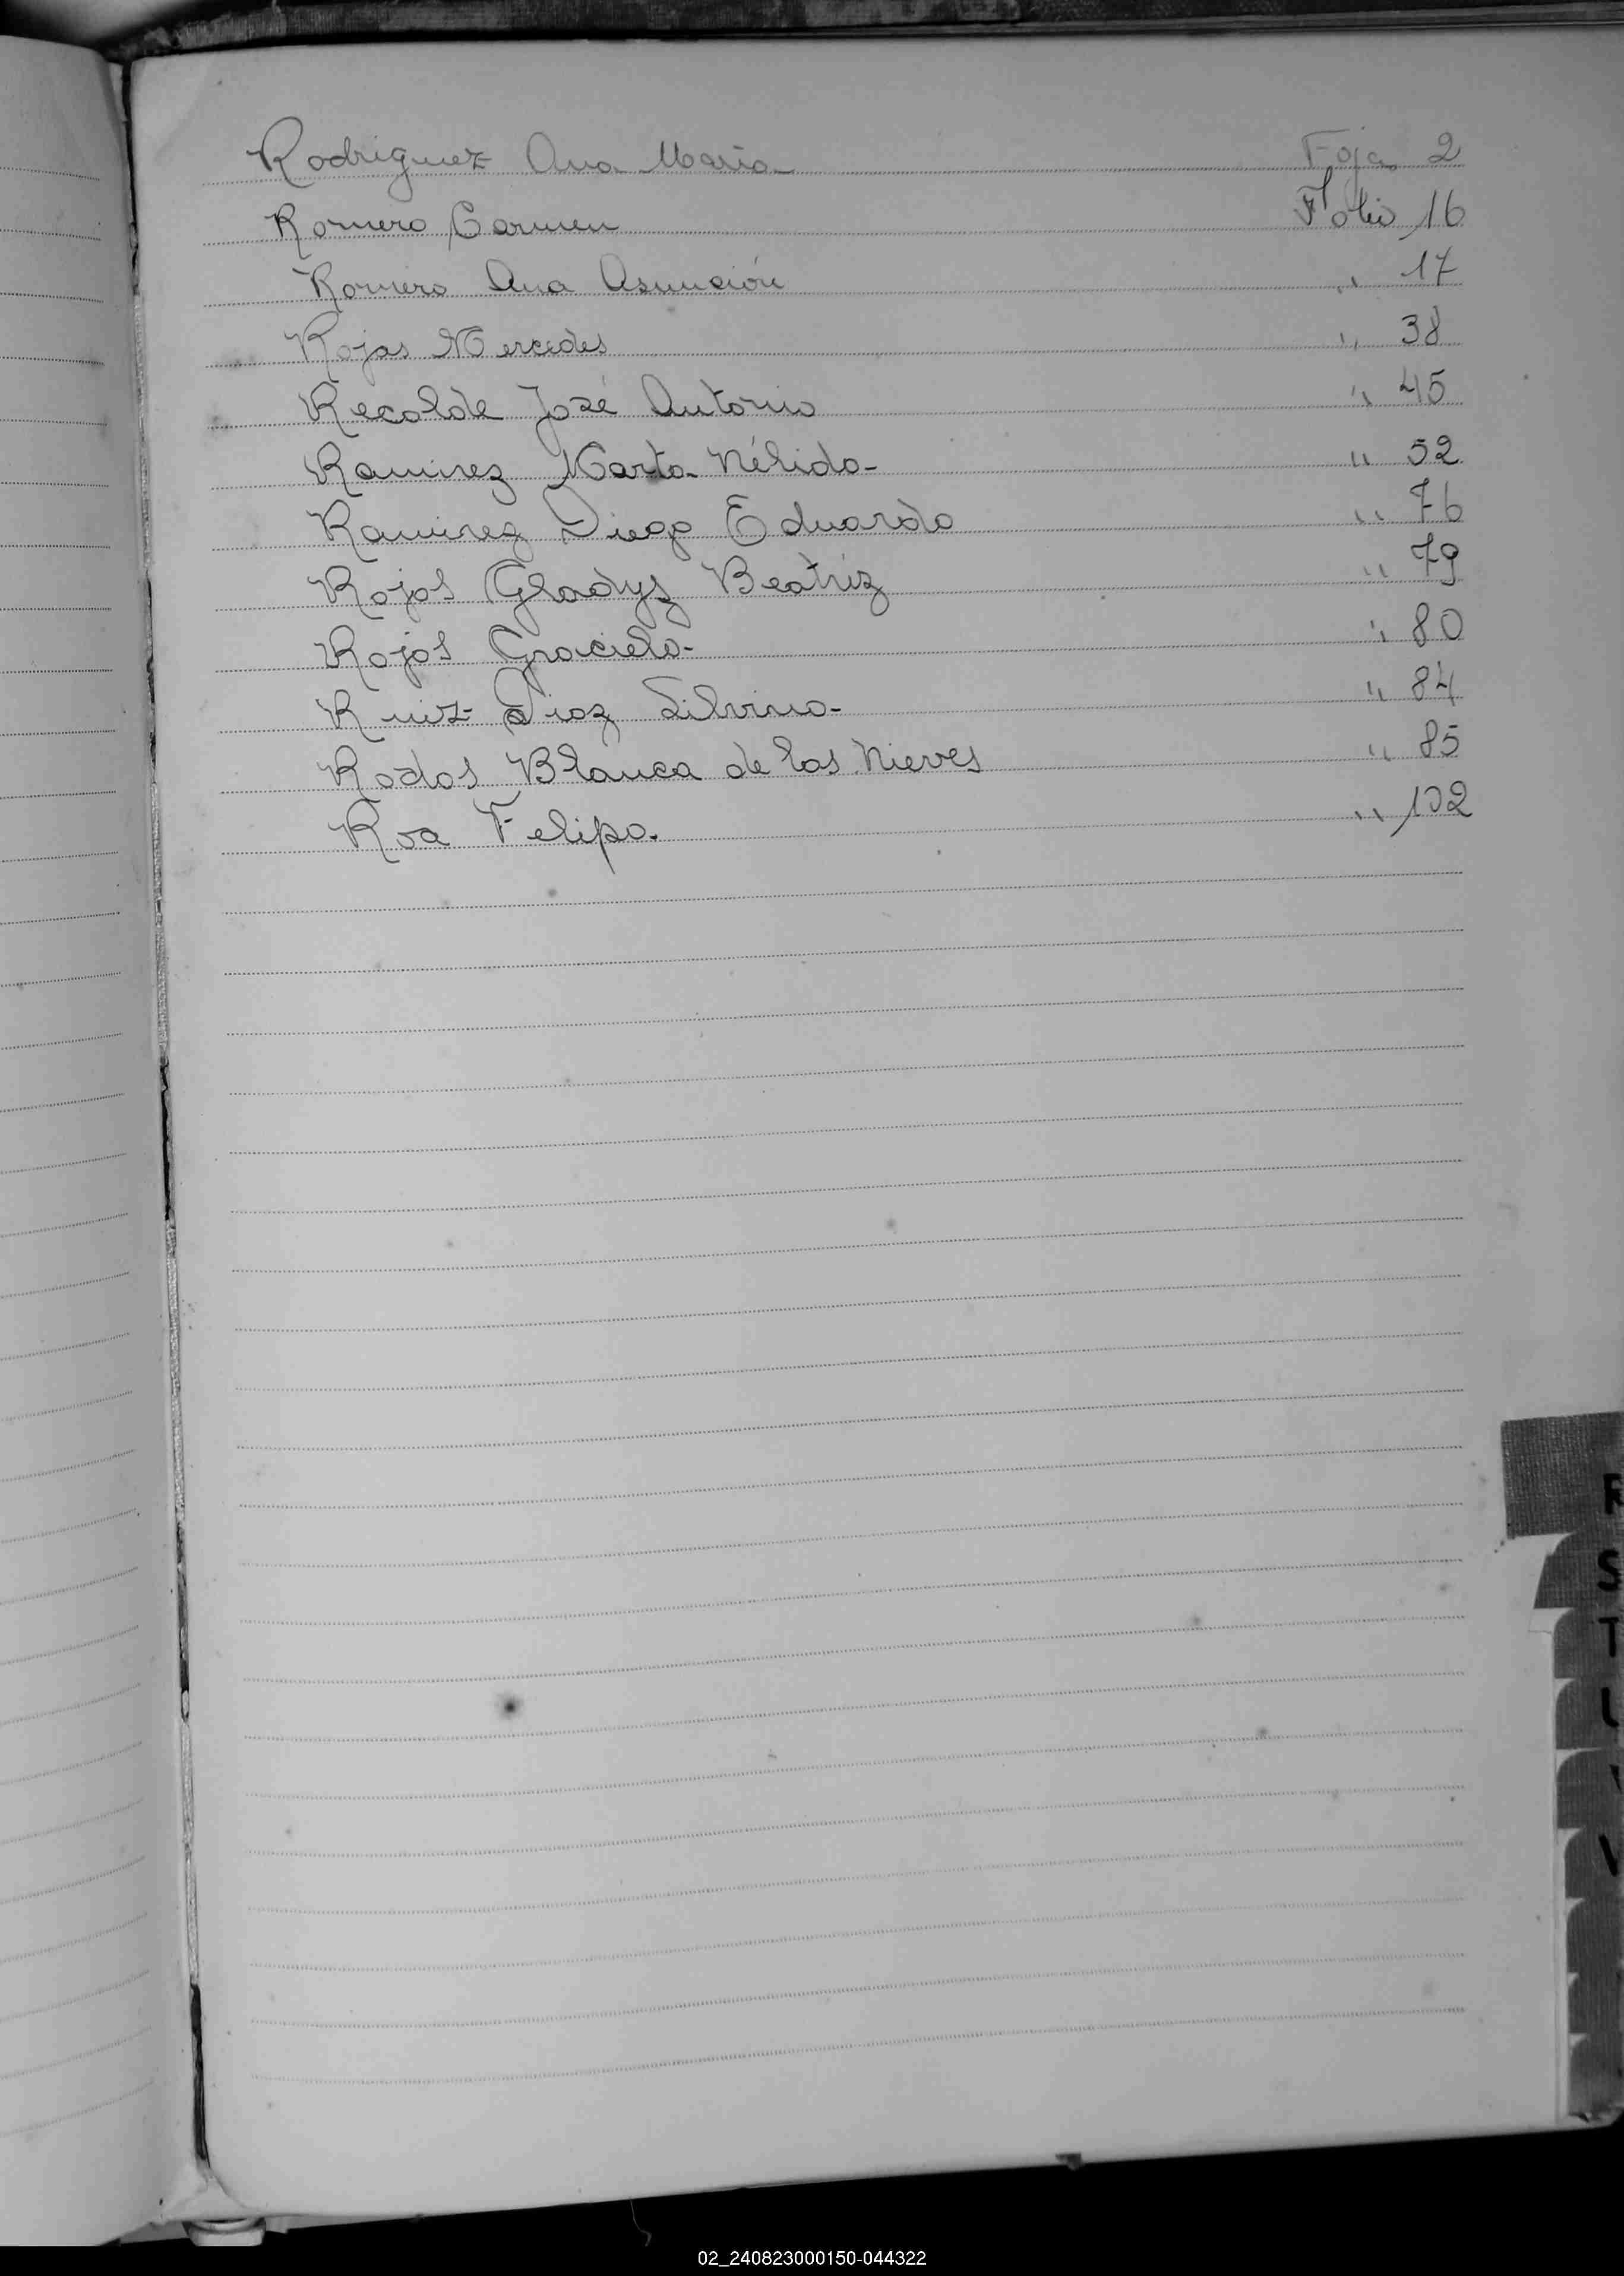 Rodriguez Ana Maria Foja 2
Romero Carmen Folio 16
Romero Ana Asunción " 17
Rojas Mercedes " 38
Recalde José Antonio " 45
Ramirez Marta Nélida " 52
Ramirez Diego Eduardo " 76
Rojas Gladys Beatriz " 79
Rojas Graciela " 80
Ruiz Diaz Silvina " 84
Rodas Blanca de las Nieves " 85
Roa Felipa " 102
R
S
T
02_240823000150-044322